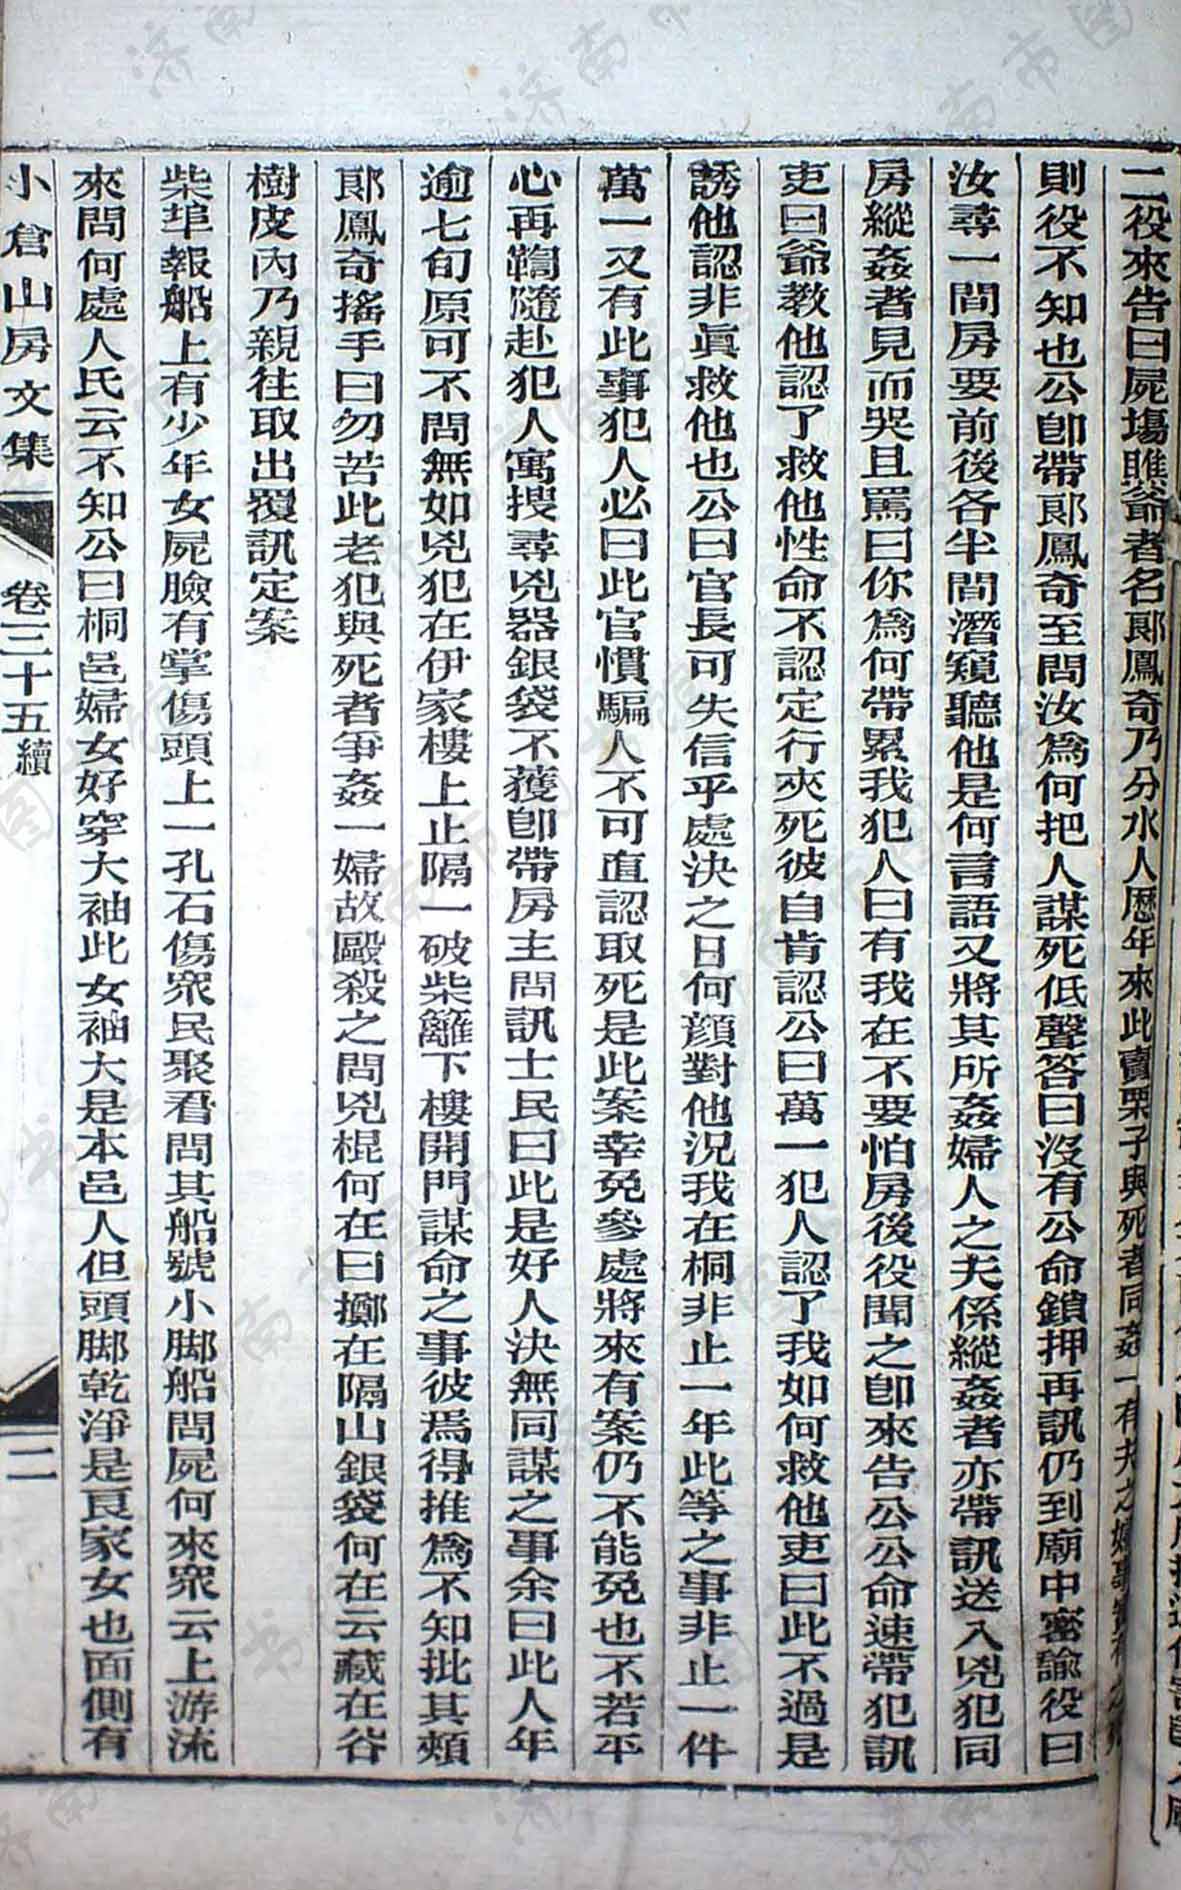 二役來告曰屍塲瞧爺者名郥鳳奇乃分水人歷年來此賣栗子與死者同姦一有夫之婦事實有之死
則役不知也公卽帶郥鳳奇至問汝爲何把人謀死低聲答曰沒有公命鎖押再訊仍到廟中密諭役曰
汝尋一間房要前後各半間潛窺聽他是何言語又將其所姦婦人之夫係縱姦者亦帶訊送入兇犯同
房縱姦者見而哭且罵曰你爲何帶累我犯人曰有我在不要怕房後役聞之卽來告公公命速帶犯訊
吏曰爺教他認了救他性命不認定行夾死彼自肯認公曰萬一犯人認了我如何救他吏曰此不過是
誘他認非眞救他也公曰官長可失信乎處決之日何顔對他況我在桐非止一年此等之事非止一件
萬一又有此事犯人必曰此官慣騙人不可直認取死是此案幸免參處將來有案仍不能免也不若平
心再鞫隨赴犯人寓搜尋兇器銀袋不獲卽帶房主問訊士民曰此是好人決無同謀之事余曰此人年
逾七旬原可不問無如兇犯在伊家樓上止隔一破柴籬下樓開門謀命之事彼焉得推爲不知批其頰
郥鳳奇搖手曰勿苦此老犯與死者爭姦一婦故毆殺之問兇棍何在曰擲在隔山銀袋何在云藏在谷
樹皮內乃親往取出覆訊定案
柴埠報船上有少年女屍臉有掌傷頭上一孔石傷眾民聚看問其船號小脚船問屍何來眾云上游流
來問何處人氏云不知公曰桐邑婦女好穿大袖此女袖大是本邑人但頭脚乾淨是良家女也面側有
小倉山房文集
卷三十五續
二